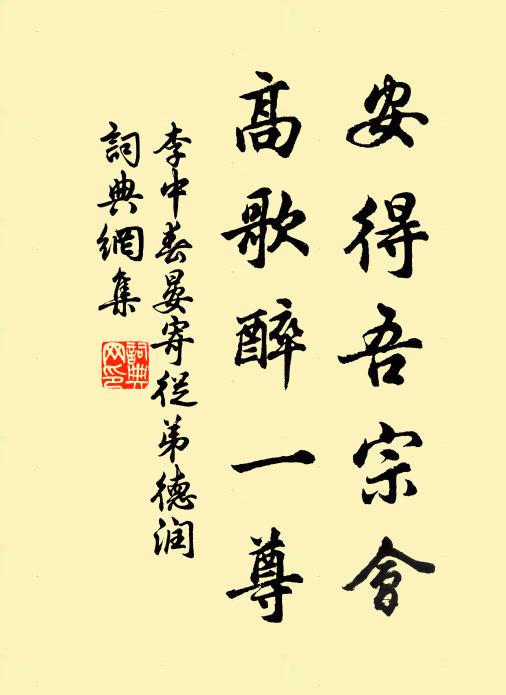 安得吾宗會
高歌醉一尊
李中春晏寄從弟德润
詞典網集
詞典网印